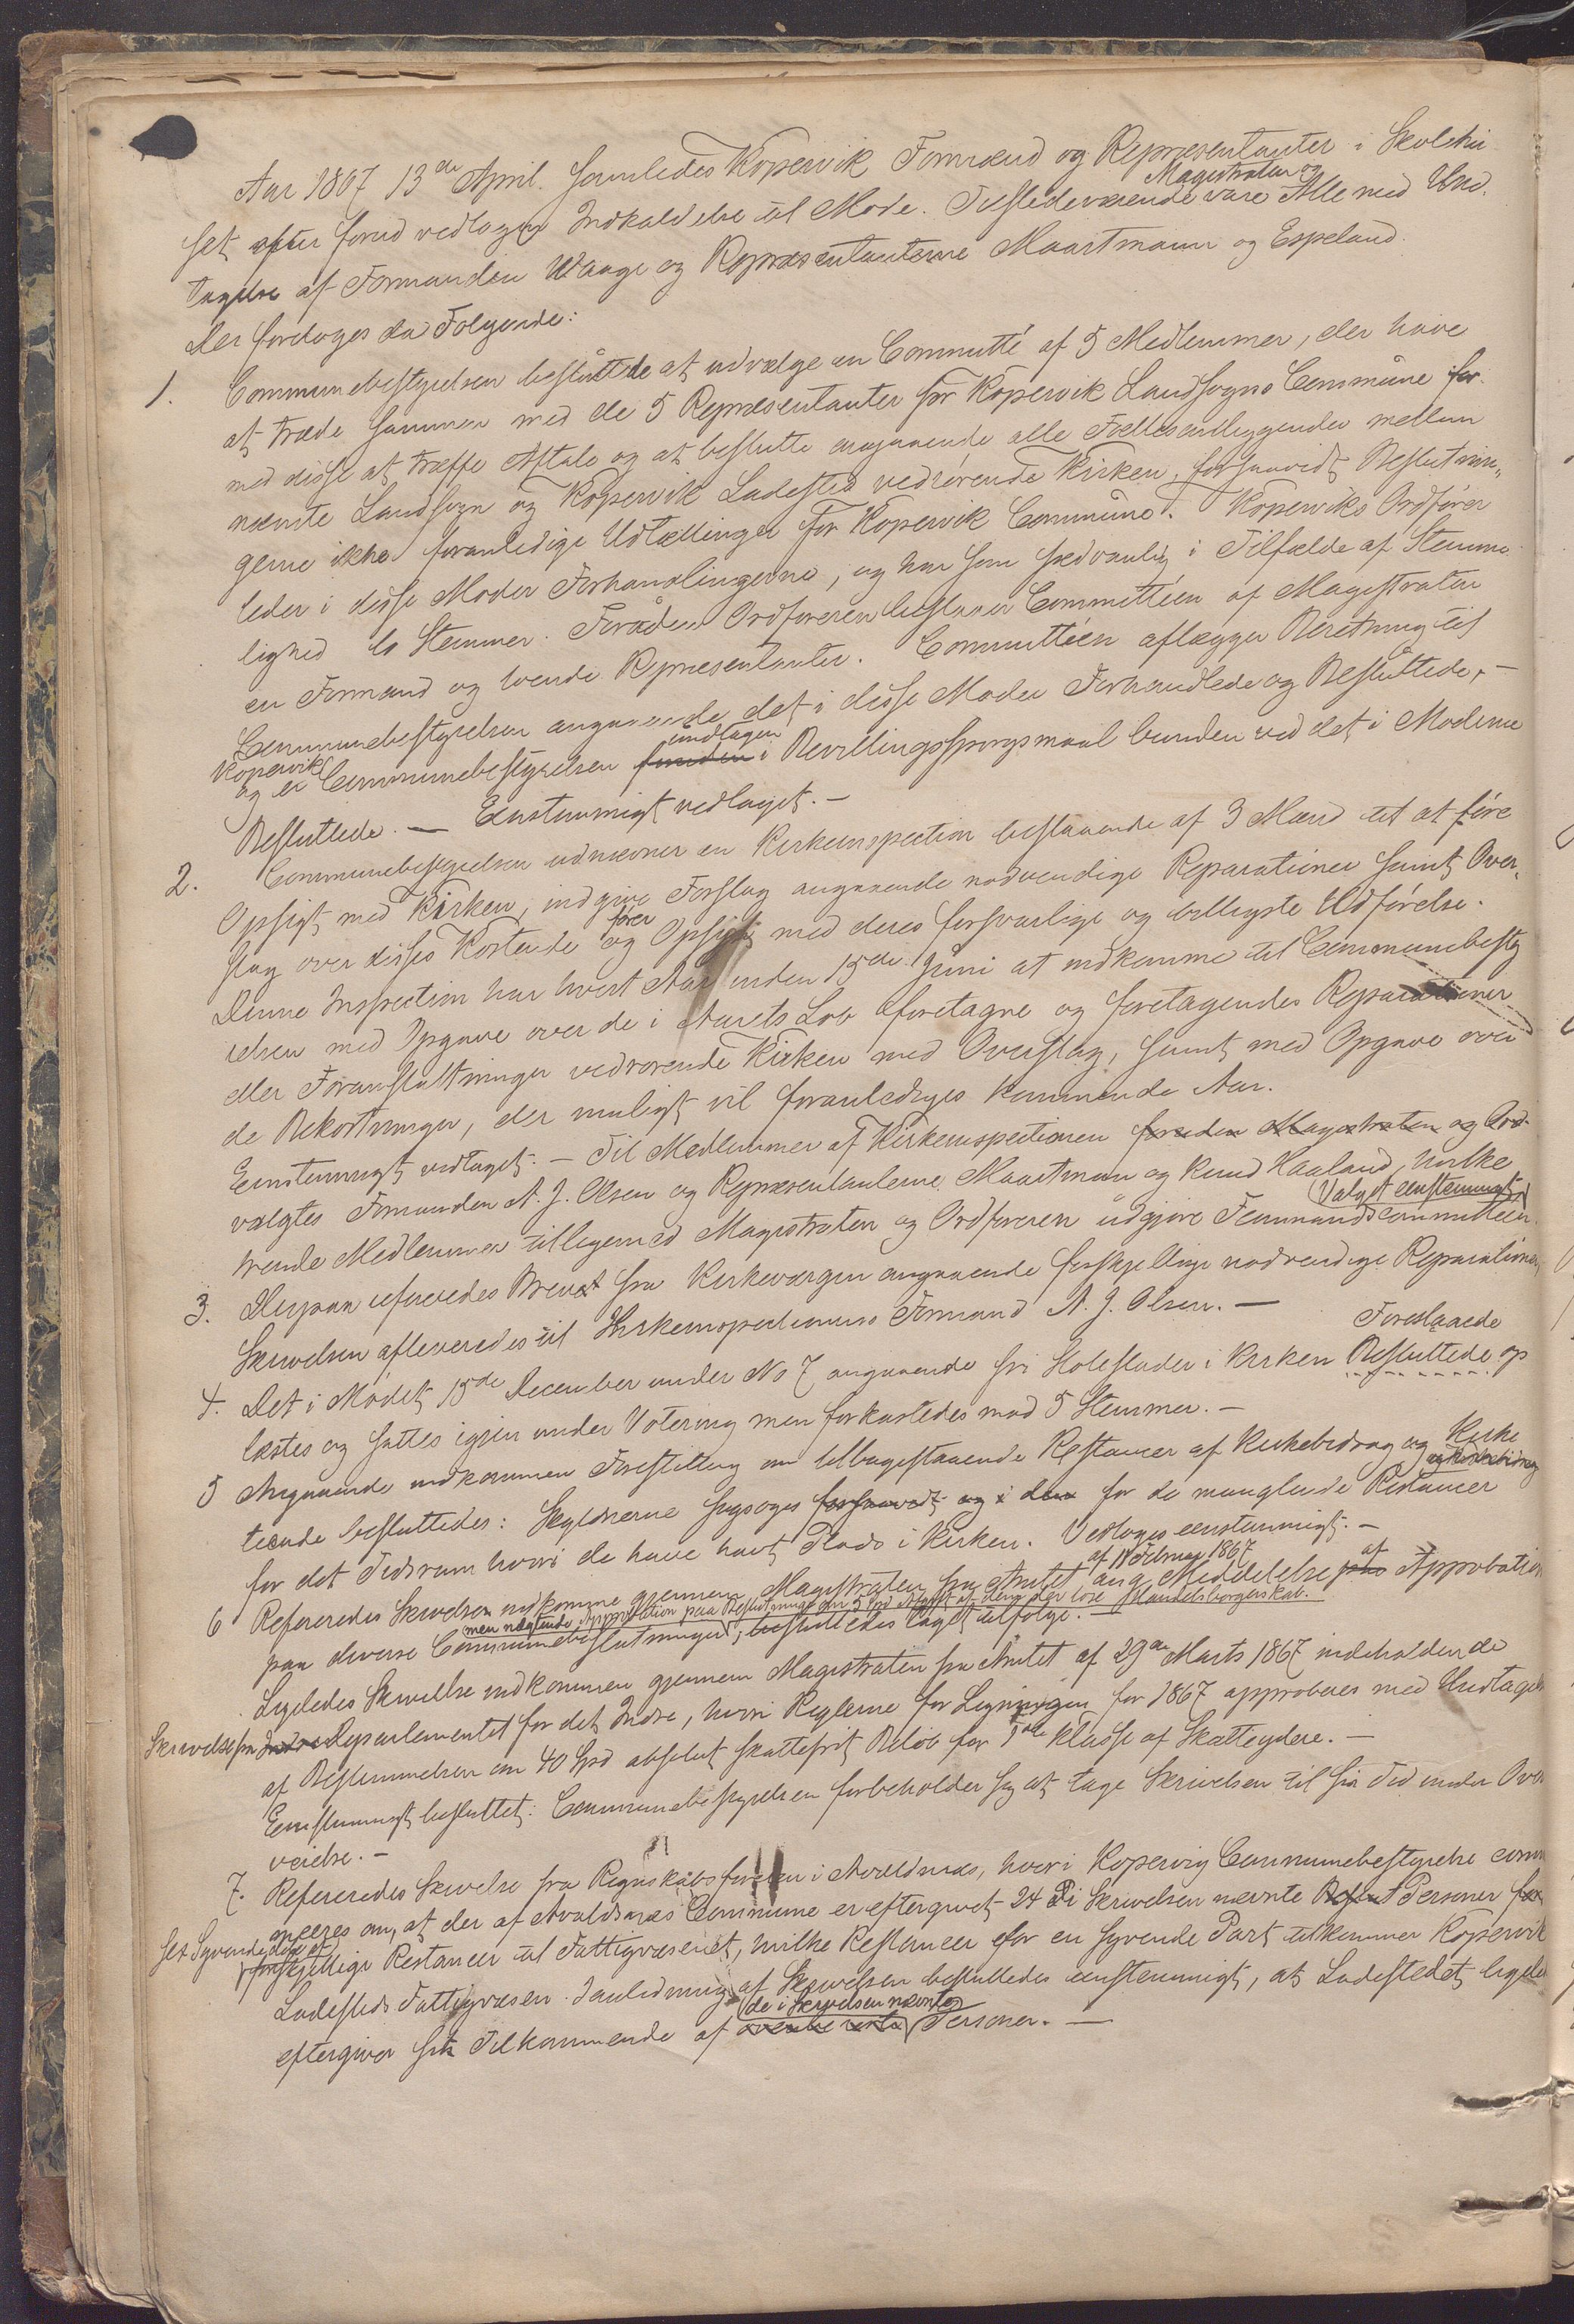 Aar 1867 13de April samledes Kopervik Formænd og Repræsentanter i Skolehu
set efter forud vedtagen Indkaldelse til Møde. Tilstedeværende Magistraten og vare Alle med Und.
tagelse af Formanden Waage og Repræsentanterne Maartmann og Espeland.
Der foretoges da Følgende:
1. Communebestyrelsen besluttede at udvælge en Committé af 5 Medlemmer, der have
at træde sammen med de 5 Repræsentanter for Kopervik Landsogns Commune for
med disse at træffe Aftale og at beslutte angaaende alle Fællesanliggender mellem
nævnte Landsogn og Kopervik Ladested vedrørende Kirken, forsaavidt Beslutnin„
gerne ikke foranledige Udtællinger for Kopervik Commune. Koperviks Ordfører
leder i disse Møder Forhandlingerne, og har som sædvanlig i Tilfælde af Stemme
lighed to Stemmer. Foruden Ordføreren bestaaer Committéen af Magistraten
en Formand og tvende Repræsentanter. Committéen aflægger Beretning til
Communebestyrelsen angaaende det i disse Møder Forhandlede og Besluttede, –
og er Koperviks Communebestyrelsen foruden undtagen i Bevillingsspørgsmaal bunden ved det i Møderne
Besluttede. — Eenstemmigt vedtaget. –
2. Communebestyrelsen udnævner en Kirkeinspection bestaaende af 3 Mænd til at føre
Opsigt med Kirken, indgive Forslag angaaende nødvendige Reparationer samt Over„
slag over disses Kostende og fører Opsigt med deres forsvarlige og billigste Udførelse.
Denne Inspection har hvert Aar inden 15de Juni at indkomme til Communebesty
relsen med Opgave over de i Aarets Løb foretagne og foretagendes Reparationer
eller Foranstaltninger vedrørende Kirken med Overslag, samt med Opgave over
de Bekostninger, der muligt vil foranlediges kommende Aar.
Eenstemmigt vedtaget. – Til Medlemmer af Kirkeinspectionen foruden Magistraten og Ord-
valgtes Formanden A. J. Olsen og Repræsentanterne Maartman og Knud Haaland, hvilke
trende Medlemmer tilligemed Magistraten og Ordføreren udgjøre Femmandscommitteen. Valget eenstemmigt
3. Derpaa refereredes Brevet fra Kirkeværgen angaaende forskjellige nødvendige Reparationer,
Skrivelsen afleveredes til Kirkeinspectionens Formand A. J. Olsen. –
4. Det i Mødet 15de December under No 7 angaaende fri Stolestader i Kirken Besluttede Foreslaaede op
læstes og sattes igjen under Votering men forkastedes mod 5 Stemmer. –
5 Angaaende indkommen Forestilling om tilbagestaaende Restancer af Kirkebidrag og Kirke
tiende besluttedes: Skyldnerne søgsøges forsaavidt og i den for de manglende Restancer
for det Tidsrum hvori de have havt Plads i Kirken. Vedtoges eenstemmigt. –
6 Refereredes Skrivelse indkomne gjennem Magistraten fra Amtet af 18 Februar 1867 ang Meddelelse af Approbation
paa diverse Communebeslutninger men nægtende Approbation paa Beslutninge om 5 Spd Afgift af dem der løse Handelsborgerskab., besluttedes taget tilfølge. –
Ligeledes Skrivelse indkommen gjennem Magistraten fra Amtet af 29de Marts 1867 indeholdende
Skrivelse fra Indre Departementet for det Indre, hvori Reglerne for Ligningen for 1867 approberes med Undtagelse
af Bestemmelsen om 40 Spd absolut skattefrit Beløb for 1ste Klasse af Skatteydere. –
Eenstemmigt besluttet: Communebestyrelsen forbeholder sig at tage Skrivelsen til sin Tid under Over
veielse. –
7. Refereredes Skrivelse fra Regnskabsføreren i Avaldsnæs, hvori Kopervig Communebestyrelse comm
uniceres om, at der af Avaldsnæs Commune er eftergivet 24 i Skrivelsen nævnte Personer
forskjellige Restancer til Fattigvæsenet, hvilke Restancer for en Syvende Part tilkommer Kopervik
Ladesteds Fattigvæsen. I anledning af Skrivelsen besluttedes eenstemmigt, at Ladestedet ligele
eftergiver sit Tilkommende af ovennævnte de i Skrivelsen nævnte Personer. —